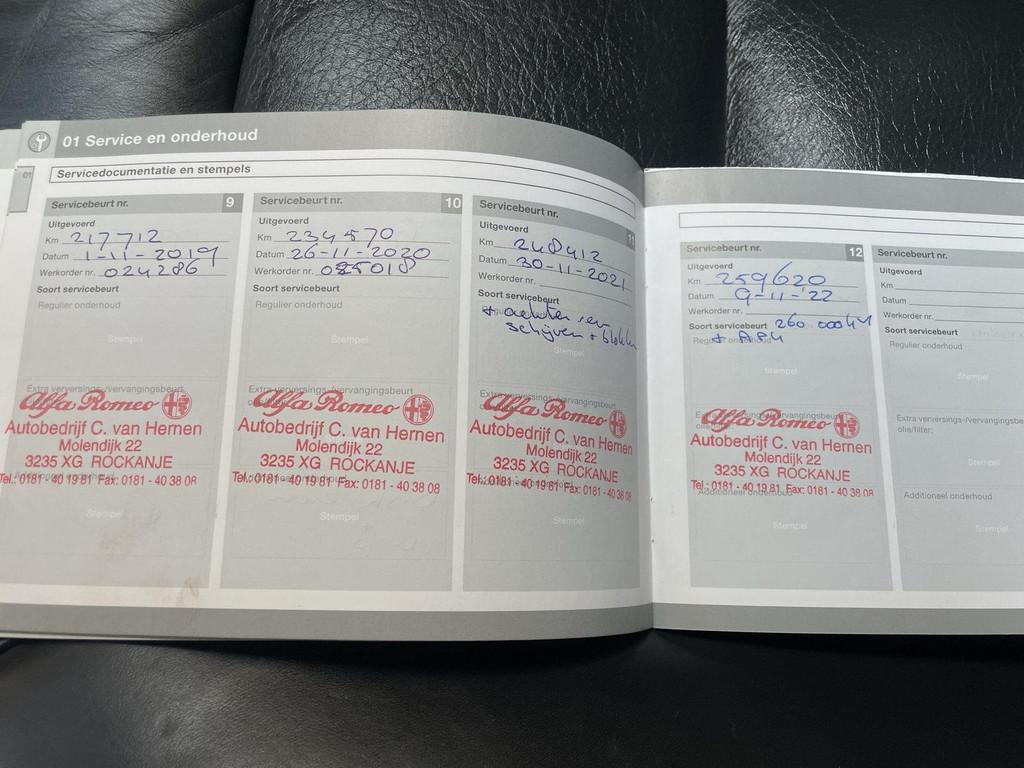 01 Service en onderhoud
01
Servicedocumentatie en stempels
Servicebeurt nr. 9
Uitgevoerd
Km 217712
Datum 1-11-2019
Werkorder nr. 024286
Soort servicebeurt
Regulier onderhoud
Stempel
Extra verversings-/vervangingsbeurt
Alfa Romeo
Autobedrijf C. van Hernen
Molendijk 22
3235 XG ROCKANJE
Tel.: 0181 - 40 19 81 Fax: 0181 - 40 38 08
Stempel
Servicebeurt nr. 10
Uitgevoerd
Km 234570
Datum 26-11-2020
Werkorder nr.
Soort servicebeurt
Regulier onderhoud
Stempel
Extra verversings-/vervangingsbeurt
Alfa Romeo
Autobedrijf C. van Hernen
Molendijk 22
3235 XG ROCKANJE
Tel.: 0181 - 40 19 81 Fax: 0181 - 40 38 08
Stempel
Servicebeurt nr. 11
Uitgevoerd
Km 248412
Datum 30-11-2021
Werkorder nr.
Soort servicebeurt
+ achter rem
schijven + blokken
Stempel
Extra verversings-/vervangingsbeurt
Alfa Romeo
Autobedrijf C. van Hernen
Molendijk 22
3235 XG ROCKANJE
Tel.: 0181 - 40 19 81 Fax: 0181 - 40 38 08
Stempel
Servicebeurt nr. 12
Uitgevoerd
Km 259620
Datum 9-11-'22
Werkorder nr.
Soort servicebeurt 260.000
Regulier onderhoud
+ APK
Stempel
Extra verversings-/vervangingsbeurt
Alfa Romeo
Autobedrijf C. van Hernen
Molendijk 22
3235 XG ROCKANJE
Tel.: 0181 - 40 19 81 Fax: 0181 - 40 38 08
Additioneel onderhoud
Stempel
Servicebeurt nr.
Uitgevoerd
Km
Datum
Werkorder nr.
Soort servicebeurt
Regulier onderhoud
Stempel
Extra verversings-/vervangingsbeurt
olie/filter:
Stempel
Additioneel onderhoud
Stempel